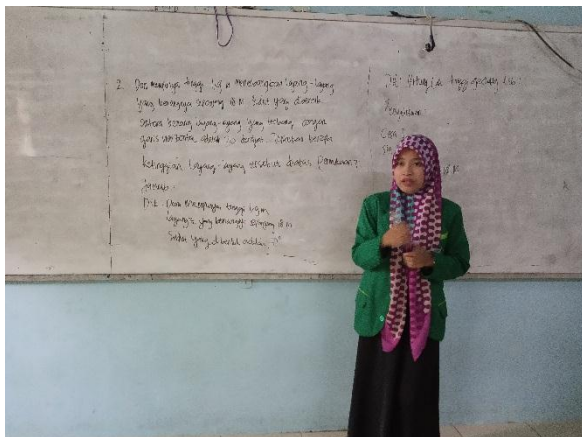 2. Dani mempunyai tinggi 1,5 m menerbangkan layang-layang
yang benangnya sepanjang 18 M. Sudut yang dibentuk
antara benang layang-layang yang terbang dengan
garis adalah 30 derajat. Tentukan berapa
ketinggian layang-layang tersebut diatas Permukaan?
Jawab
Dik: Dani mempunyai tinggi 1,5 m
layang2 yang benangnya sepanjang 18 m
Sudut yang dibentuk adalah
Dit: Hitunglah tinggi
Penyelesaian
Cos
18 M